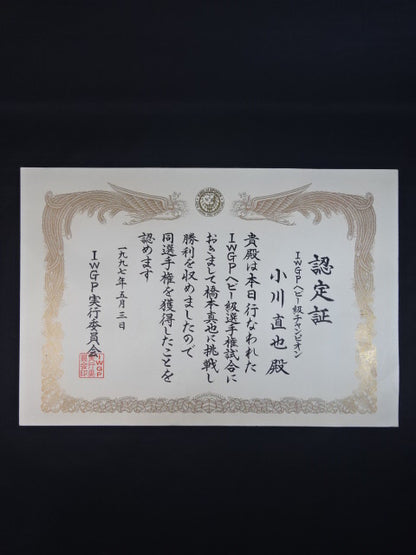 認定証
IWGPヘビー級チャンピオン
小川直也殿
貴殿は本日行なわれた
IWGPヘビー級選手権試合に
おきまして橋本真也に挑戦し
勝利を収めましたので
同選手権を獲得したことを
認めます
一九九七年五月三日
IWGP実行委員会